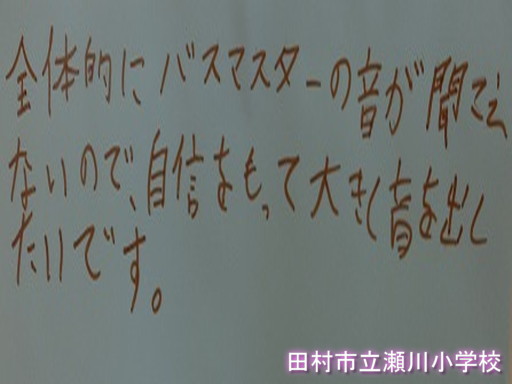 全体的にバスマスターの音が聞こえ
ないので、自信をもって大きく音を出し
たいです。
田村市立瀬川小学校